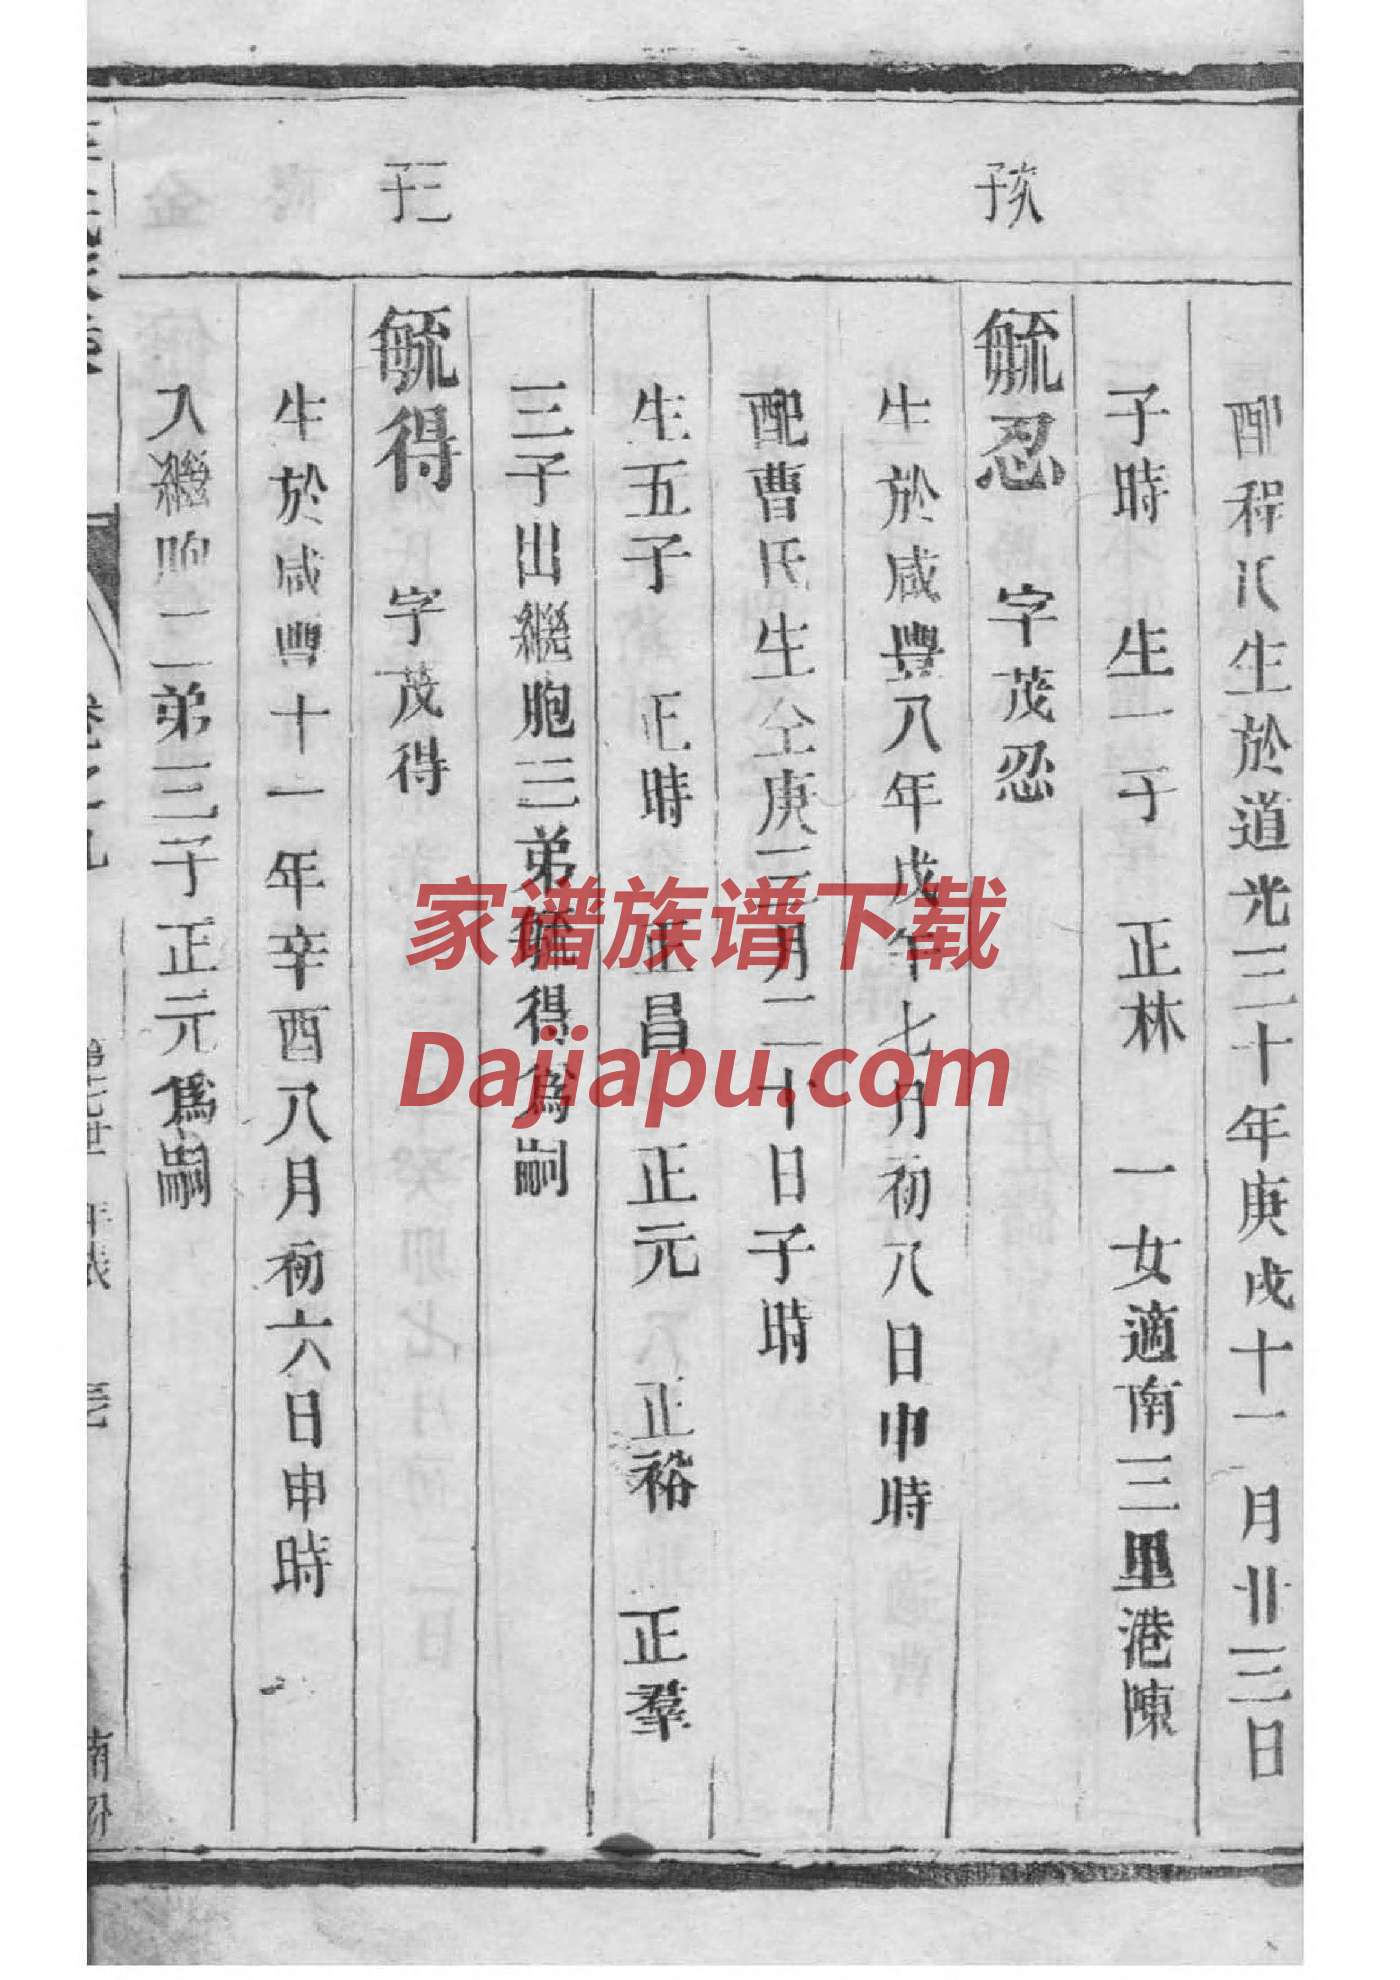 次子
三子
配程氏生於道光三十年庚戌十一月廿三日
子時 生一子 正林 一女適南三里港陳
毓忍 字茂忍
生於咸豐八年戊午七月初八日申時
配曹氏生仝庚三月二十日子時
生五子 正時 正昌 正元 正裕 正羣
三子出繼胞三弟毓得為嗣
毓得 字茂得
生於咸豐十一年辛酉八月初六日申時
入繼胞二弟三子正元為嗣
卷之九
家谱族谱下载
Dajiapu.com